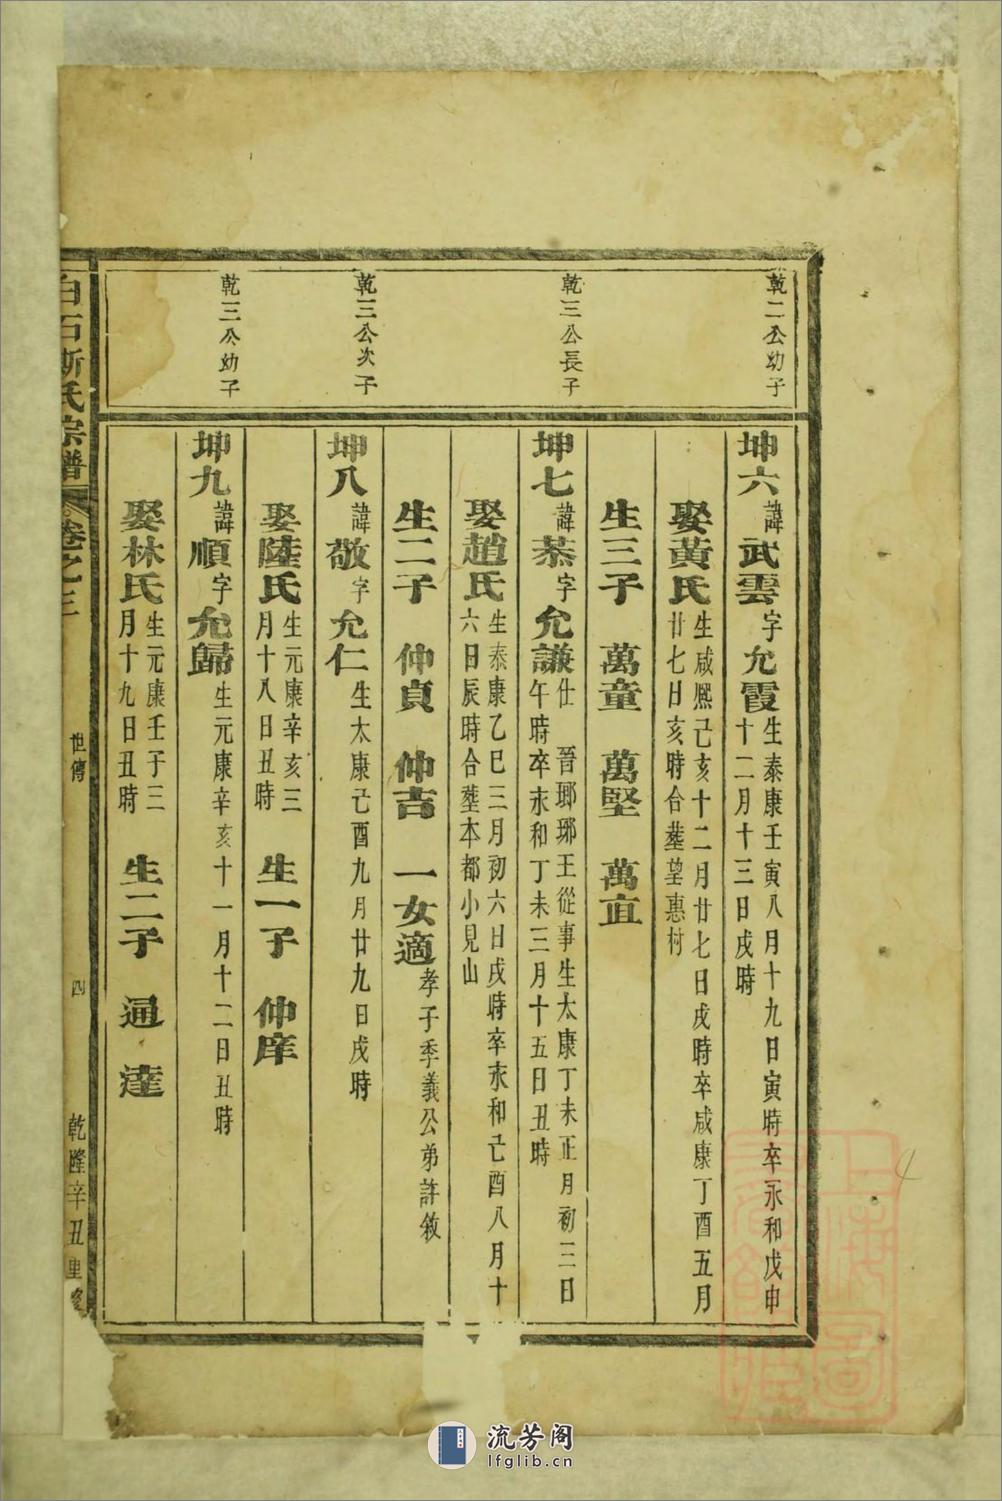 乾二公幼子
乾三公長子
乾三公次子
乾三公幼子
坤六諱武雲字允霞生泰康壬寅八月十九日寅時卒永和戊申
十二月十三日戌時
娶黃氏生咸熙己亥十二月廿七日戌時卒咸康丁酉五月
廿七日亥時合塟望惠村
生三子 萬童 萬堅 萬直
坤七諱恭字允謙仕 晉瑯琊王從事生太康丁未正月初三日
午時卒永和丁未三月十五日丑時
娶趙氏生泰康乙巳三月初六日戌時卒永和己酉八月十
六日辰時合塟本都小見山
生二子 仲貞 仲吉 一女適孝子季義公弟許敘
坤八諱敬字允仁生太康己酉九月廿九日戌時
娶陸氏生元康辛亥三
月十八日丑時 生一子 仲庠
坤九諱順字允歸生元康辛亥十一月十二日丑時
娶林氏生元康壬子三
月十九日丑時 生二子 通 達
白石斯氏宗譜 卷之三 世傳 四 乾隆辛丑里修
4
流芳阁
lfglib.cn